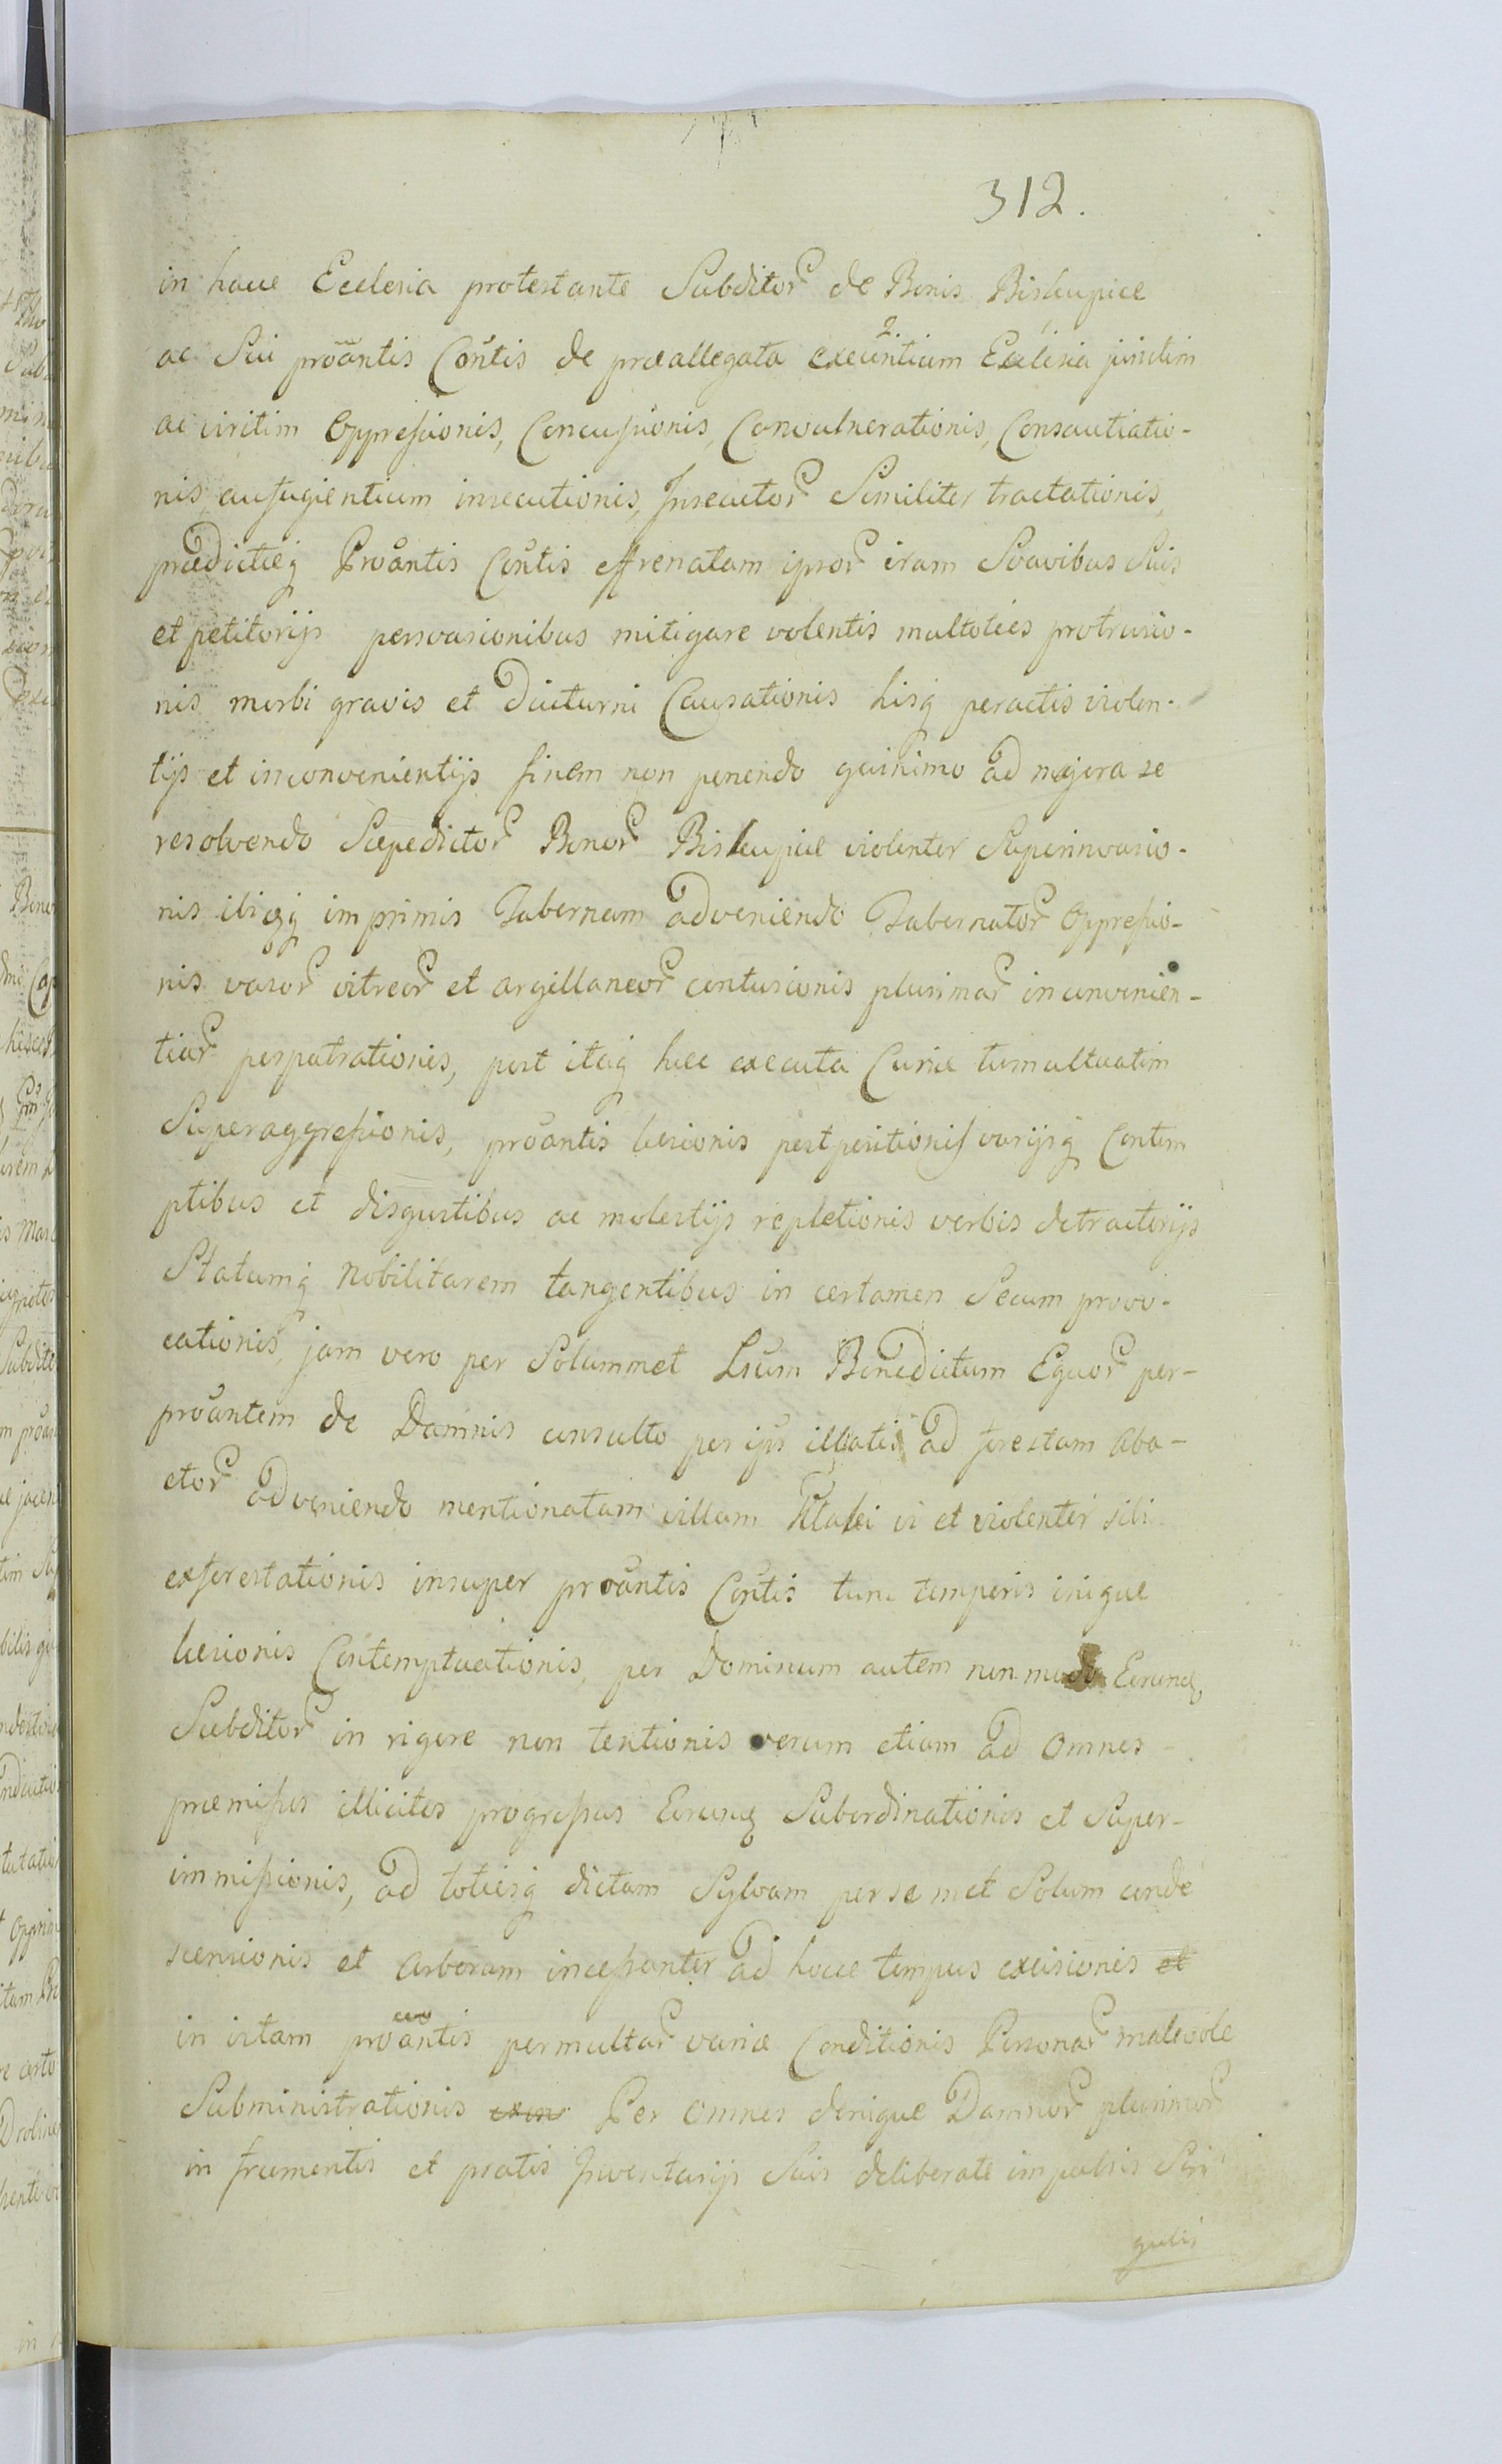 312.
in hacce Ecclesia protestante Subditor de Bonis Biskupice
ac Sui proãntis Coñtis de præallegata exeuntium Ecclesia junctim
ac viritim Oppressionis, Concussionis, Convulnerationis, Consautiatio-
nis, aufugientium insecutionis, Insecutor Similiter tractationis,
prædictæq Proãntis Coñtis effrenatam ipsor iram Svavibus Suis
et petitorijs persvasionibus mitigare volentis multoties protrusio-
nis morbi gravis et Diuturni Causationis hisq peractis violen-
tijs et inconvenientijs finem non ponendo quinimo ad majora se
resolvendo Sæpedictor Bonor Biskupice violenter Superinvasio-
nis ibiq imprimis Tabernam adveniendo Tabernator Oppressio-
nis vasor vitreor et argillaneor contusionis plurimar inconvenien-
tiar perpatrationis, post itaq hæc executa Curiæ tumultuatim
Superaggressionis, proãntis læsionis postpositionis varijsq Contem
ptibus et disgustibus ac molestijs repletionis verbis detractorijs
Statumq Nobilitarem tangentibus in certamen Secum provo-
cationis, jam vero per Solummet Lsum Benedictum Equor per-
proãntem de Damnis consulto per ips illatis ad forestam aba-
ctor adveniendo mentionatam villam vi et violenter sibi
exforestationis insuper proãntis Coñtis tunc temporis inique
læsionis Contemptuationis, per Dominum autem non modo Eorundq,
Subditor in rigore non tentionis verum etiam ad Omnes
præmissos illicitos progressus Eorundq Subordinationis et Super-
immissionis, ad totiesq dictam Sylvam per se met Solum conde
scensionis et Arborum incessanter ad hocce tempus excisionis et
in istam proãntis permultar variæ Conditionis Personar malevole
Subministrationis Per Omnes denique Damnor plurimor
in frumentis et pratis Inventarijs Suis deliberate impulsis Sin
gulis